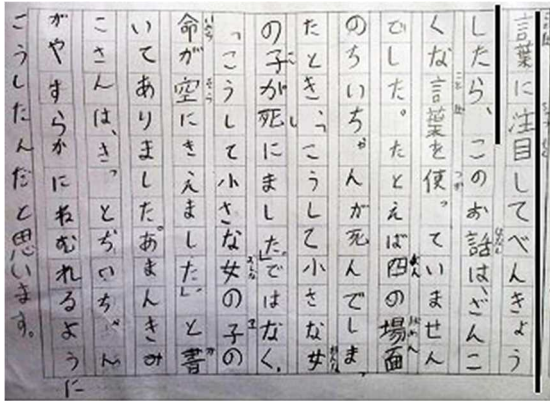 言葉に注目してべんきょう
したら、このお話は、ざんこ
くな言葉を使っていません
でした。たとえば四の場面
のちいちゃんが死んでしまっ
たとき、「こうして小さな女
の子が死にました。」ではなく、
「こうして小さな女の子の
命が空にきえました。」と書
いてありました。あまんきみ
こさんは、きっとちいちゃん
がやすらかにねむれるように
こうしたんだと思います。